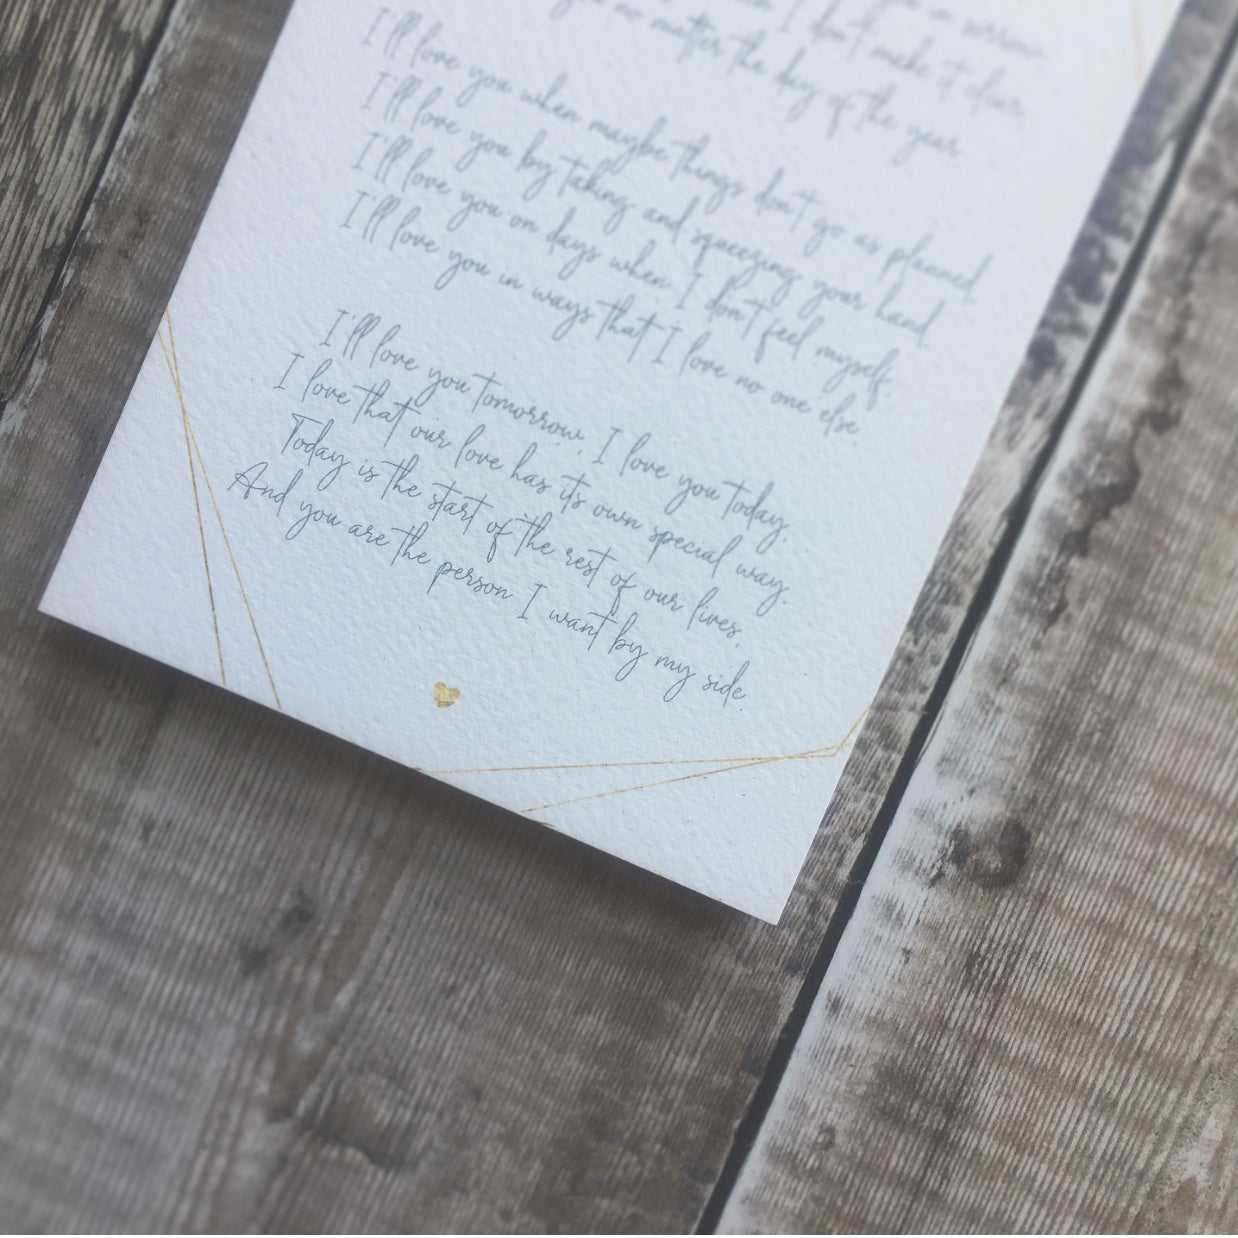 in sorrow
I don't make it clear.
no matter the day of the year.
I'll love you when maybe things don't go as planned.
I'll love you by taking and squeezing your hand.
I'll love you on days when I don't feel myself.
I'll love you in ways that I love no one else.
I'll love you tomorrow, I love you today.
I love that our love has its own special way.
Today is the start of the rest of our lives,
And you are the person I want by my side.